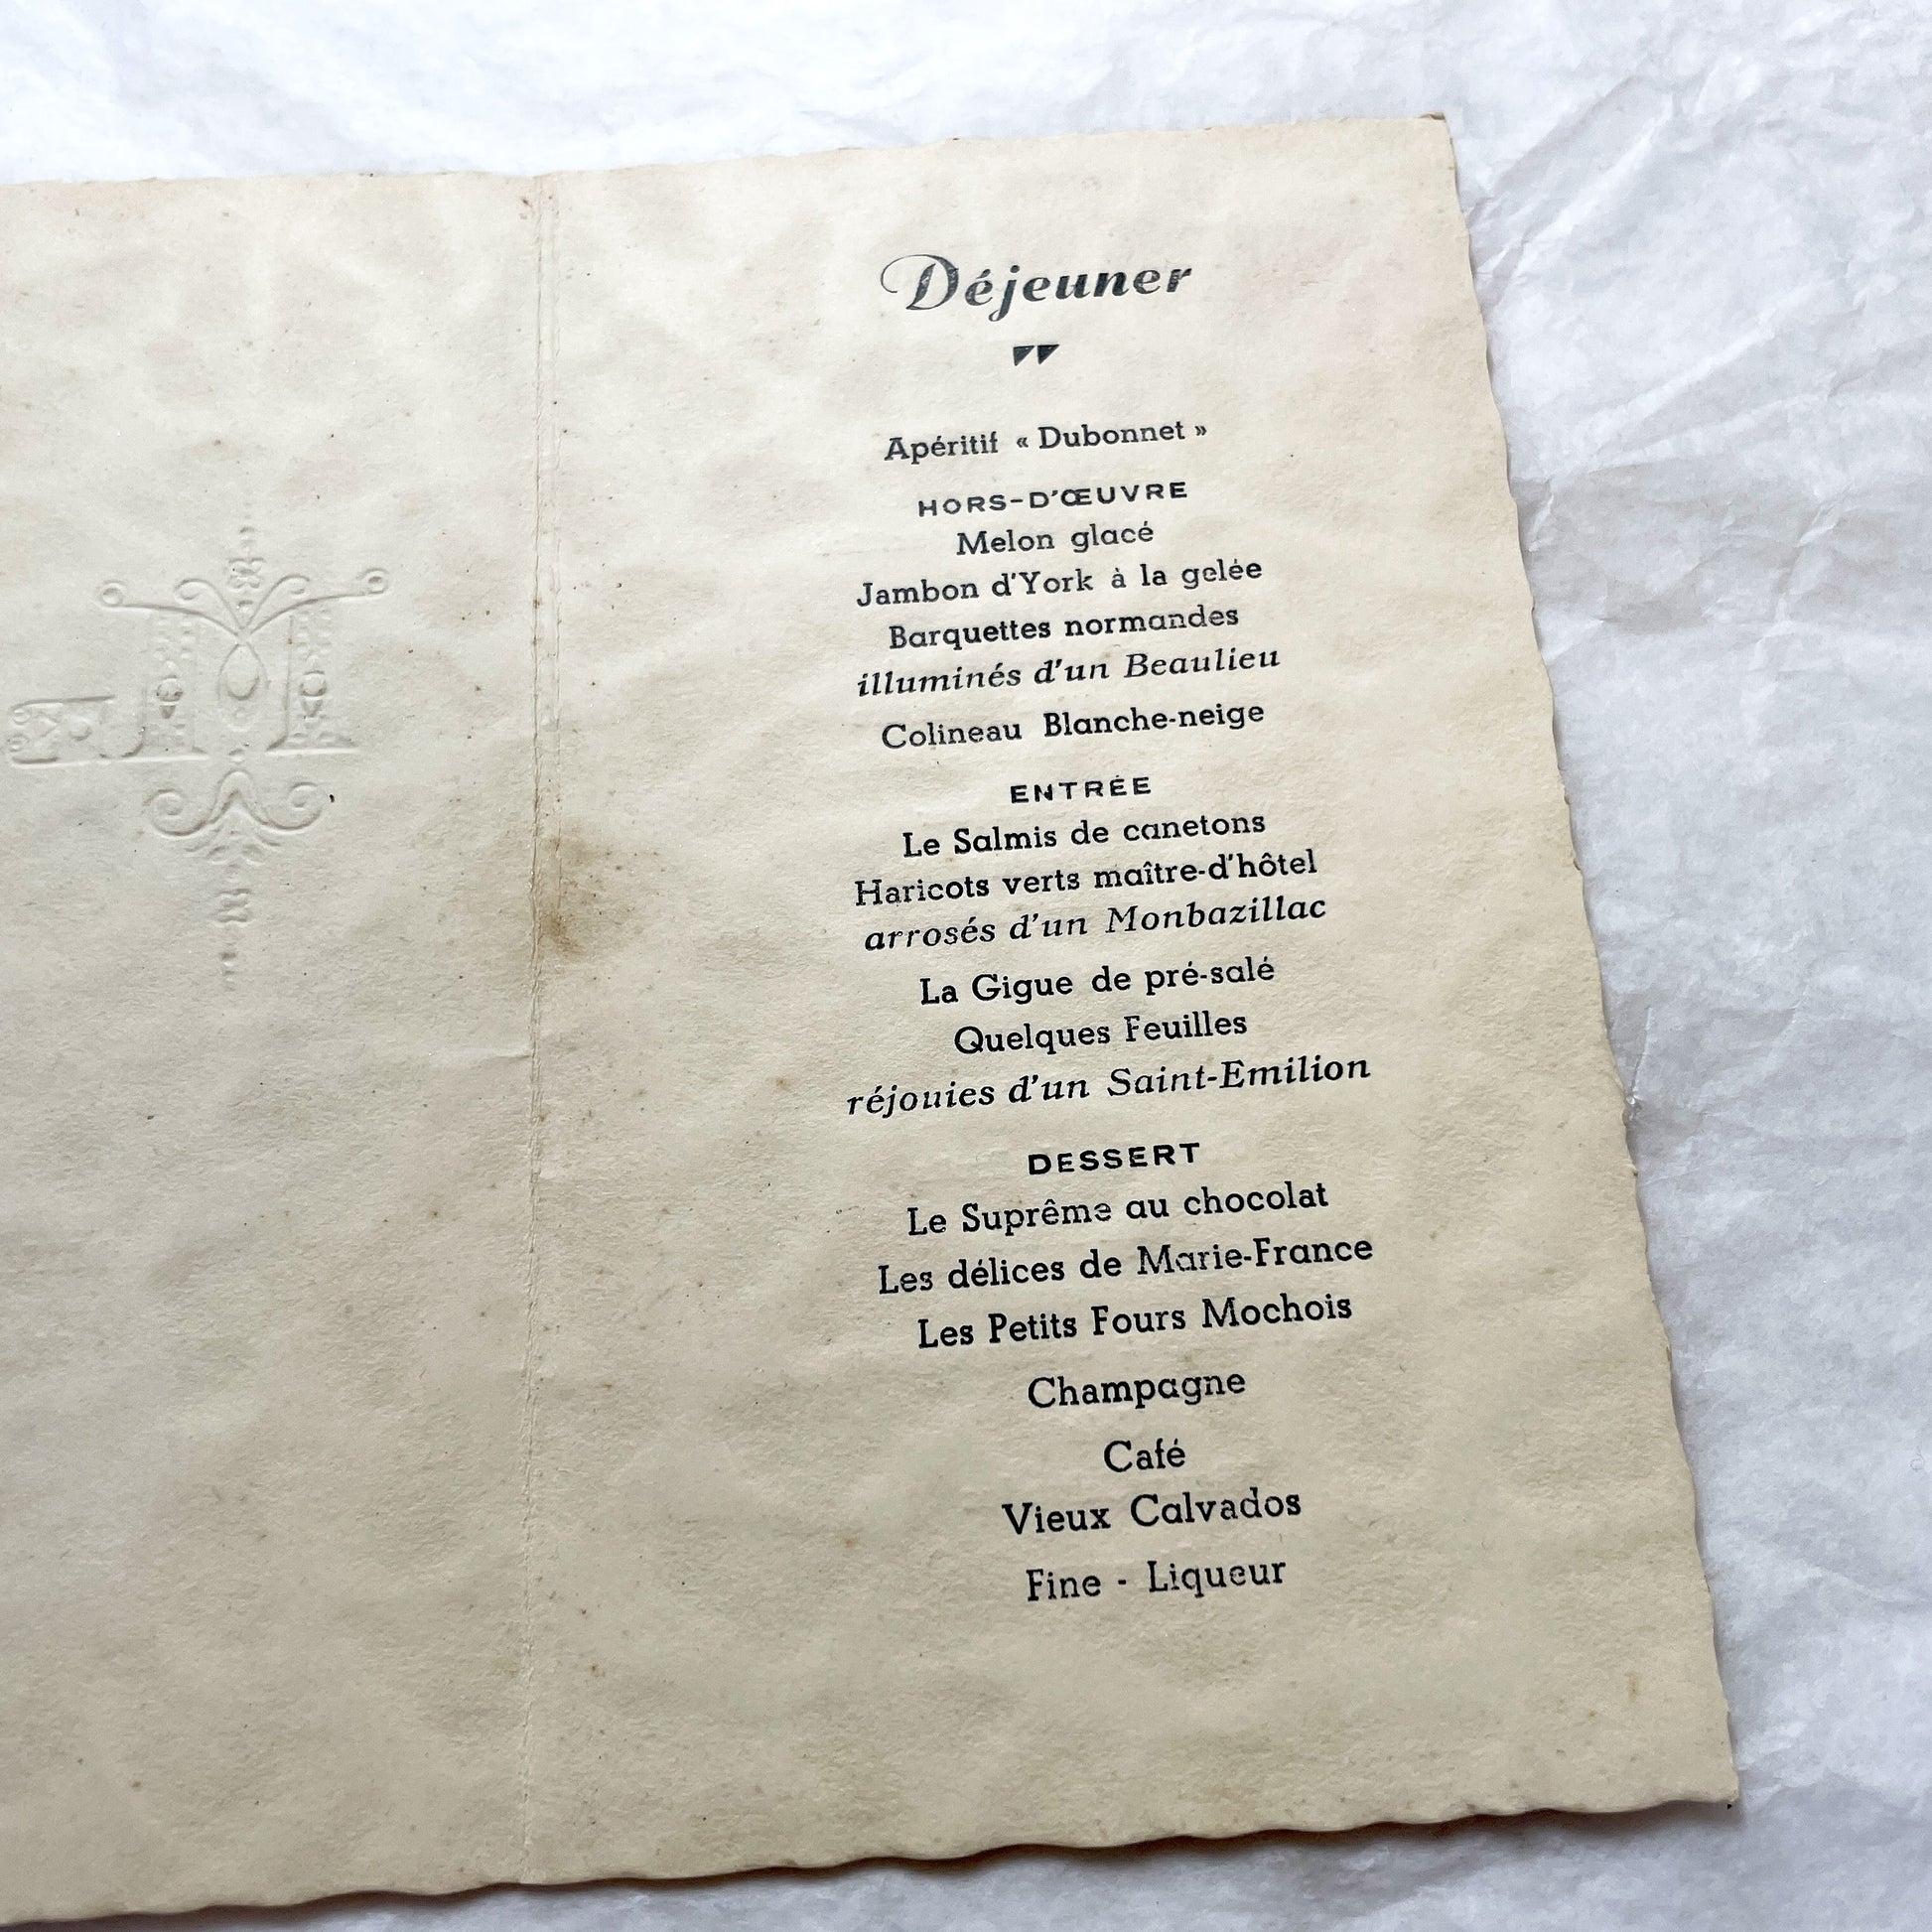 Déjeuner
Apéritif « Dubonnet »
HORS-D'ŒUVRE
Melon glacé
Jambon d'York à la gelée
Barquettes normandes
illuminés d'un Beaulieu
Colineau Blanche-neige
ENTRÉE
Le Salmis de canetons
Haricots verts maître-d'hôtel
arrosés d'un Monbazillac
La Gigue de pré-salé
Quelques Feuilles
réjouies d'un Saint-Emilion
DESSERT
Le Suprême au chocolat
Les délices de Marie-France
Les Petits Fours Mochois
Champagne
Café
Vieux Calvados
Fine - Liqueur